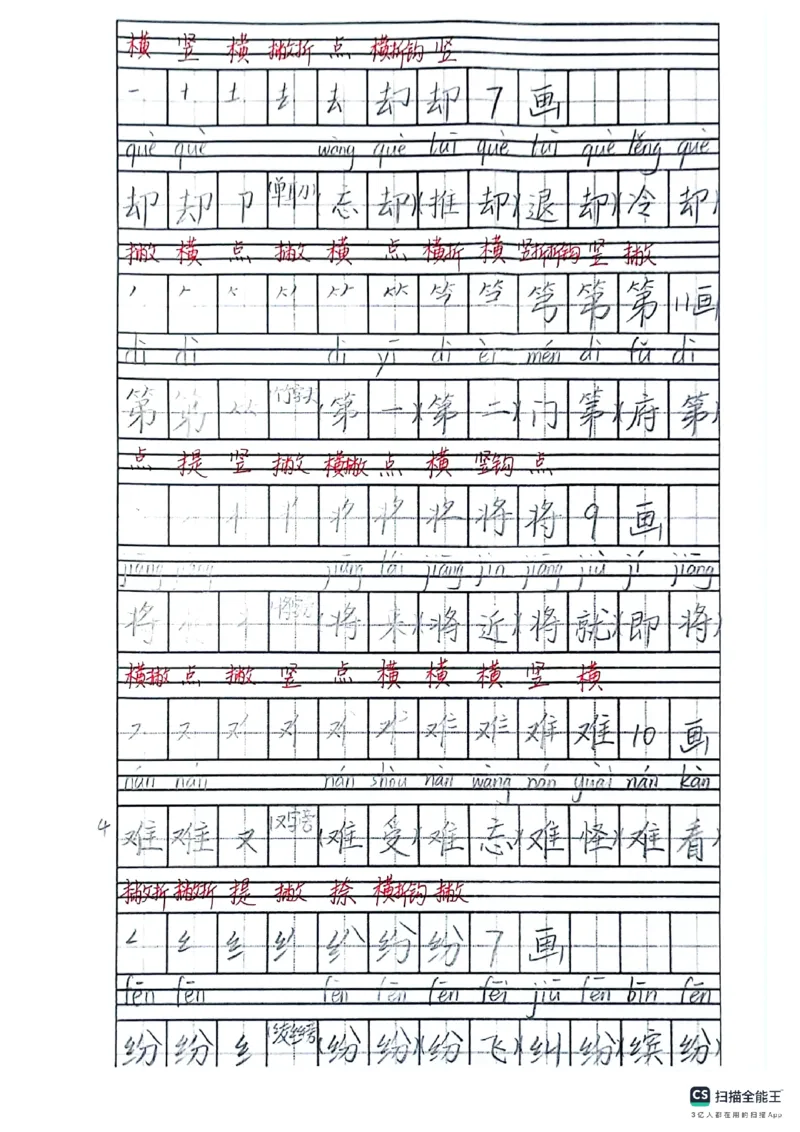 横 竖 横 撇折 点 横折钩 竖
去 却 却 7 画
què què wàng què tuī què tuì què lěng què
却 却 卩 (单耳) (忘 却) (推 却) (退 却) (冷 却)
撇 横 点 撇 横 点 横折 横 竖折折钩 竖 撇
第 第 11画
dì dì dì yī dì èr mén dì fǔ dì
第 第 (竹字头) (第 一) (第 二) (门 第) (府 第)
点 提 竖 撇 横撇 点 横 竖钩 点
将 将 9 画
jiāng jiāng jiāng lái jiāng jìn jiāng jiù jí jiāng
将 (将来) (将 近) (将 就) (即 将)
横撇 点 撇 竖 点 横 横 横 竖 横
难 难 10 画
nán nán nán shòu nán wàng nán guài nán kàn
4 难 难 又 (又字旁) (难 受) (难 忘) (难 怪) (难 看)
撇折 撇折 提 撇 捺 横折钩 撇
纟 纷 纷 7 画
fēn fēn fēn fēn fēn fēi jiū fēn bīn fēn
纷 纷 纟 (绞丝旁) (纷 纷) (纷 飞) (纠 纷) (缤 纷)
CS 扫描全能王
3亿人都在用的扫描App